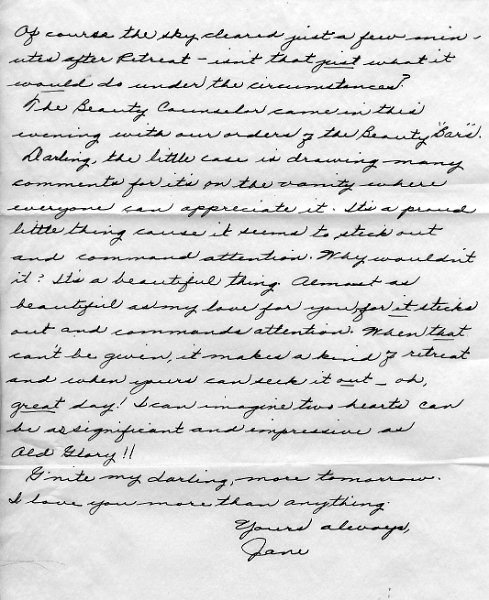 Of course the sky cleared just a few min-
utes after Retreat - isn't that just what it
would do under the circumstances?
The Beauty Counselor came in this
evening with our orders of the Beauty "Bars".
Darling, the little case is drawing many
comments for it's on the vanity where
everyone can appreciate it. It's a proud
little thing cause it seems to stick out
and command attention. Why wouldn't
it? It's a beautiful thing. Almost as
beautiful as my love for you, for it sticks
out and commands attention. When that
can't be given, it makes a kind of retreat
and when yours can seek it out - oh,
great day! I can imagine two hearts can
be as significant and impressive as
Old Glory!!
G'nite my darling, more tomorrow.
I love you more than anything.
Yours always,
Jane